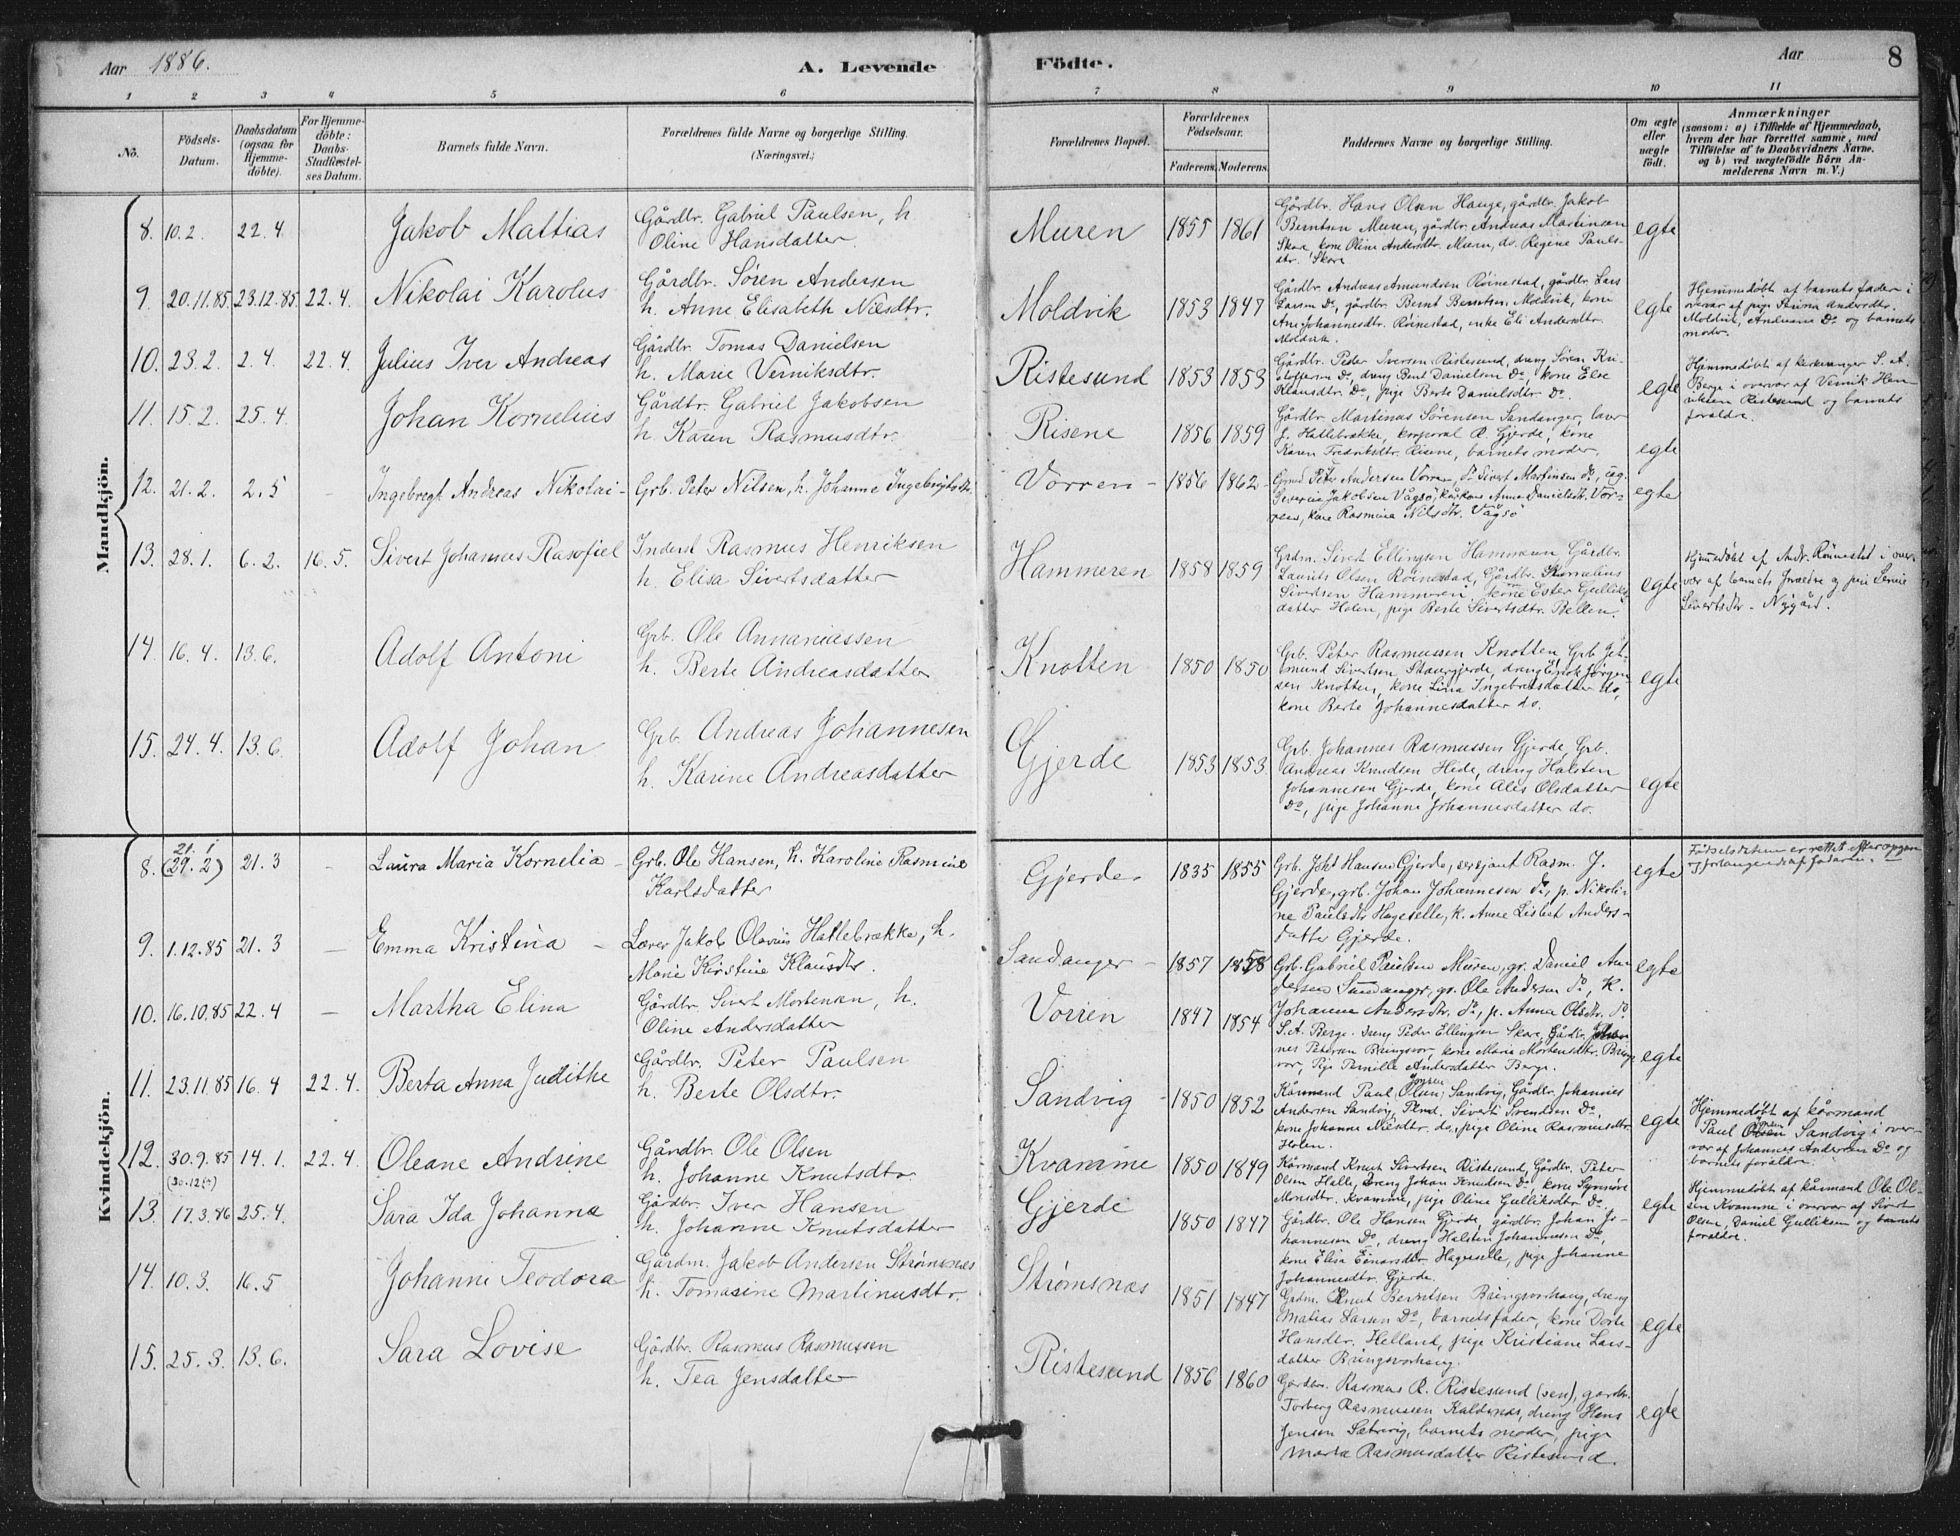 Aar 1886.
A. Levende Födte.
Aar
8
1 2 3 4 5 6 7 8 9 10 11
No.
Födsels-Datum.
Daabsdatum (ogsaa for Hjemmedöbte).
For Hjemmedöbte: Daabs-Stadfæstelses Datum.
Barnets fulde Navn.
Forældrenes fulde Navne og borgerlige Stilling. (Næringsvei.)
Forældrenes Bopæl.
Forældrenes Födselsaar.
Faderens. Moderens.
Faddernes Navne og borgerlige Stilling.
Om ægte eller uægte födt.
Anmærkninger
(saasom: a) i Tilfælde af Hjemmedaab, hvem der har forrettet samme, med Tilföielse af to Daabsvidners Navne, og b) ved uægtefödte Börn Anmelderens Navn m. V.)
Mandkjön.
8. 10.2. 22.4. Jakob Mattias
Gårdbr. Gabriel Paulsen, h
Oline Hansdatter.
Muren 1855 1861
Gårdbr. Hans Olsen Hauge, gårdbr. Jakob
Berntsen Muren, gårdbr. Andreas Martinsen
Skare, kone Oline Andersdtr. Muren, do. Regine Pauls-
dtr. Skare
egte
9. 20.11.85 23.12.85 22.4. Nikolai Karolus
Gårdbr. Søren Andersen
h. Anne Elisabeth Nilsdtr.
Moldvik 1853 1847
Gårdbr. Andreas Amundsen Röinestad, gårdbr. Lars
Larsen Do, gårdbr. Bernt Berntsen Moldvik, kone
Ane Johannesdtr. Röinestad, enke Eli Andersdtr.
Moldvik.
egte
Hjemmedøbt af barnets fader i
overvær af pige Andersdtr.
Moldvik, Do og barnets
moder.
10. 23.2. 2.4. 22.4. Julius Iver Andreas
Gårdbr. Tomas Danielsen
h. Marie Verniksdtr.
Ristesund 1853 1853
Gårdbr. Peder Iversen Ristesund, dreng Søren Kri-
stoffersen Do, dreng Bent Danielsen Do, kone Else
Klausdtr. Do, pige Berte Danielsdtr. Do.
egte
Hjemmedøbt af kirkesanger S. A.
Berge i overvær af Vernik Hen
riksen Ristesund og barnets
foraldre.
11. 15.2. 25.4. Johan Kornelius
Gårdbr. Gabriel Jakobsen
h. Karen Rasmusdtr.
Risene 1856 1859
Gårdbr. Martinus Sørensen Sandanger, lærer
J. Hatlebrække, korporal R. Gjerde, kone
Karen Fredriksdtr. Risene, barnets moder.
egte
12. 21.2. 2.5 - Ingebregt Andreas Nikolai -
Grb. Peter Nilsen, h. Johanne Ingebrigtsdtr.
Vorren - 1856 1862
Peter Andersen Vorren, Do Sivert Martinsen Do,
Severin Jakobsen Vågsø, Anna Danielsdtr. Vor-
ren, kone Rasmina Nilsdtr. Vågsø
egte
13. 28.1. 6.2. 16.5. Sivert Johannes Rasofiel
Inderst Rasmus Henriksen
h. Elisa Sivertsdatter
Hammeren 1858 1859
Grdm. Sivert Ellingsen Hammeren, Gårdbr.
Laurits Olsen Röinestad, Gårdbr. Kornelius
Sivertsen Hammeren, kone Ester Gulliks-
datter Holen, pige Berte Sivertsdtr. Bellen.
egte
Hjemmedøbt af Andr. Röinestad i over-
vær af barnets forældre og
Sivertsdtr - Nygård.
14. 16.4. 13.6. Adolf Antoni
Grb. Ole Annaniassen
h. Berte Andreasdatter
Knotten 1850 1850
Grb. Peter Rasmussen Knotten, Grb. Jet-
mund Sivertsen Skaregjerde, dreng Enok Jørgen-
sen Knotten, kone Lina Ingebretsdatter do,
kone Berte Johannesdatter do.
egte
15. 24.4. 13.6. Adolf Johan
Grb. Andreas Johannesen
h. Karine Andreasdatter
Gjerde 1853 1853
Grb. Johannes Rasmussen Gjerde, Grb.
Andreas Knudsen Hide, dreng Halsten
Johannesen Gjerde, kone Alis Olsdatter
Do, pige Johanne Johannesdatter do.
egte
Kvindekjön.
8. 21.1 (29.2) 21.3 - Laura Maria Kornelia -
Grb. Ole Hansen, h. Karoline Rasmine
Karlsdatter
Gjerde 1835 1855
Grb. Johs Hansen Gjerde, sersjant Rasm. J.
Gjerde, grb. Johan Johannesen Do, p. Nikoli-
ne Paulsdtr Hageselle, k. Anne Lisbet Anders-
datter Gjerde.
egte
Fødselsdatum er rettet efter opgave
og forlangende af faderen.
9. 1.12.85 21.3 - Emma Kristina -
Lærer Jakob Olavius Hatlebrække, h.
Marie Kirstine Klausdtr.
Sandanger - 1857 1858
Grb. Gabriel Paulsen Muren, gr. Daniel An-
dersen Sandanger, gr. Ole Andersen Do, k.
Johanna Andersdtr. Do, p. Anna Olsdtr. Do
egte
10. 16.10.85 22.4 - Martha Elina
Gårdbr. Sivert Mortensen, h.
Oline Andersdatter
Vorren 1847 1854
S. A. Berge, dreng Peder Ellingsen Skare, Gårdbr. Johan-
nes Petersen Bringsvor, kone Marie Mortensdtr. Brings-
vor, Pige Pernille Andersdatter Berge.
egte
11. 23.11.85 16.4 22.4. Berta Anna Judithe
Gårdbr. Peter Paulsen
h. Berte Olsdtr.
Sandvig 1850 1852
Kårmand Paul Olsen Jonsen Sandvig, Gårdbr. Johannes
Andersen Sandvig, Sivert Sventsen Do,
kone Johanne Nilsdtr. do, pige Oline Rasmusdtr.
Holen.
egte
Hjemmedøbt af kårmand
Paul Olsen Jonsen Sandvig i over-
vær af Johannes Andersen Do og
barnets foraldre.
12. 30.9.85 14.1. 22.4. Oleane Andrine
Gårdbr. Ole Olsen
h. Johanne Knutsdtr.
Kvamme 1850 1849
Kårmand Knut Sivertsen Ristesund, Gårdbr. Peter
Olsen Halle, Dreng Johan Knudsen Do, kone Synnöve
Monsdtr. Kvamme, pige Oline Gulliksdtr. Do.
egte
Hjemmedøbt af kårmand Ole Ol-
sen Kvamme i overvær af Sivert
Olsen, Daniel Gulliksen og barnets
foraldre.
13. 17.3.86 25.4. Sara Ida Johanna
Gårdbr. Iver Hansen
h. Johanne Knutsdatter
Gjerde 1850 1847
Gårdbr. Ole Hansen Gjerde, gårdbr. Johan Jo-
hannesen Do, dreng Halsten Johannesen Do,
kone Elisa Einarsdtr Hageselle, pige Johanne
Johannesdtr. Gjerde.
14. 10.3. 16.5 Johanne Teodora
Gårdm. Jakob Andersen Strømsnæs
h. Tomasine Martinusdtr.
Strømsnæs 1851 1847
Grdm. Knut Berntsen Bringsvorhaug, dreng
Matias Larsen Do, barnets fader, kone Dorte
Hansdtr. Helland, pige Kristiane Lars-
datter Bringsvorhaug.
egte
15. 25.3. 13.6. Sara Lovise
Gårdbr. Rasmus Rasmussen
h. Tea Jensdatter
Ristesund 1856 1860
Gårdbr. Rasmus R. Ristesund (sen), gårdbr.
Torberg Rasmussen Kaldsnæs, dreng Hans
Jensen Sætrvig, barnets moder, pige
Marta Rasmusdatter Ristesund.
egte